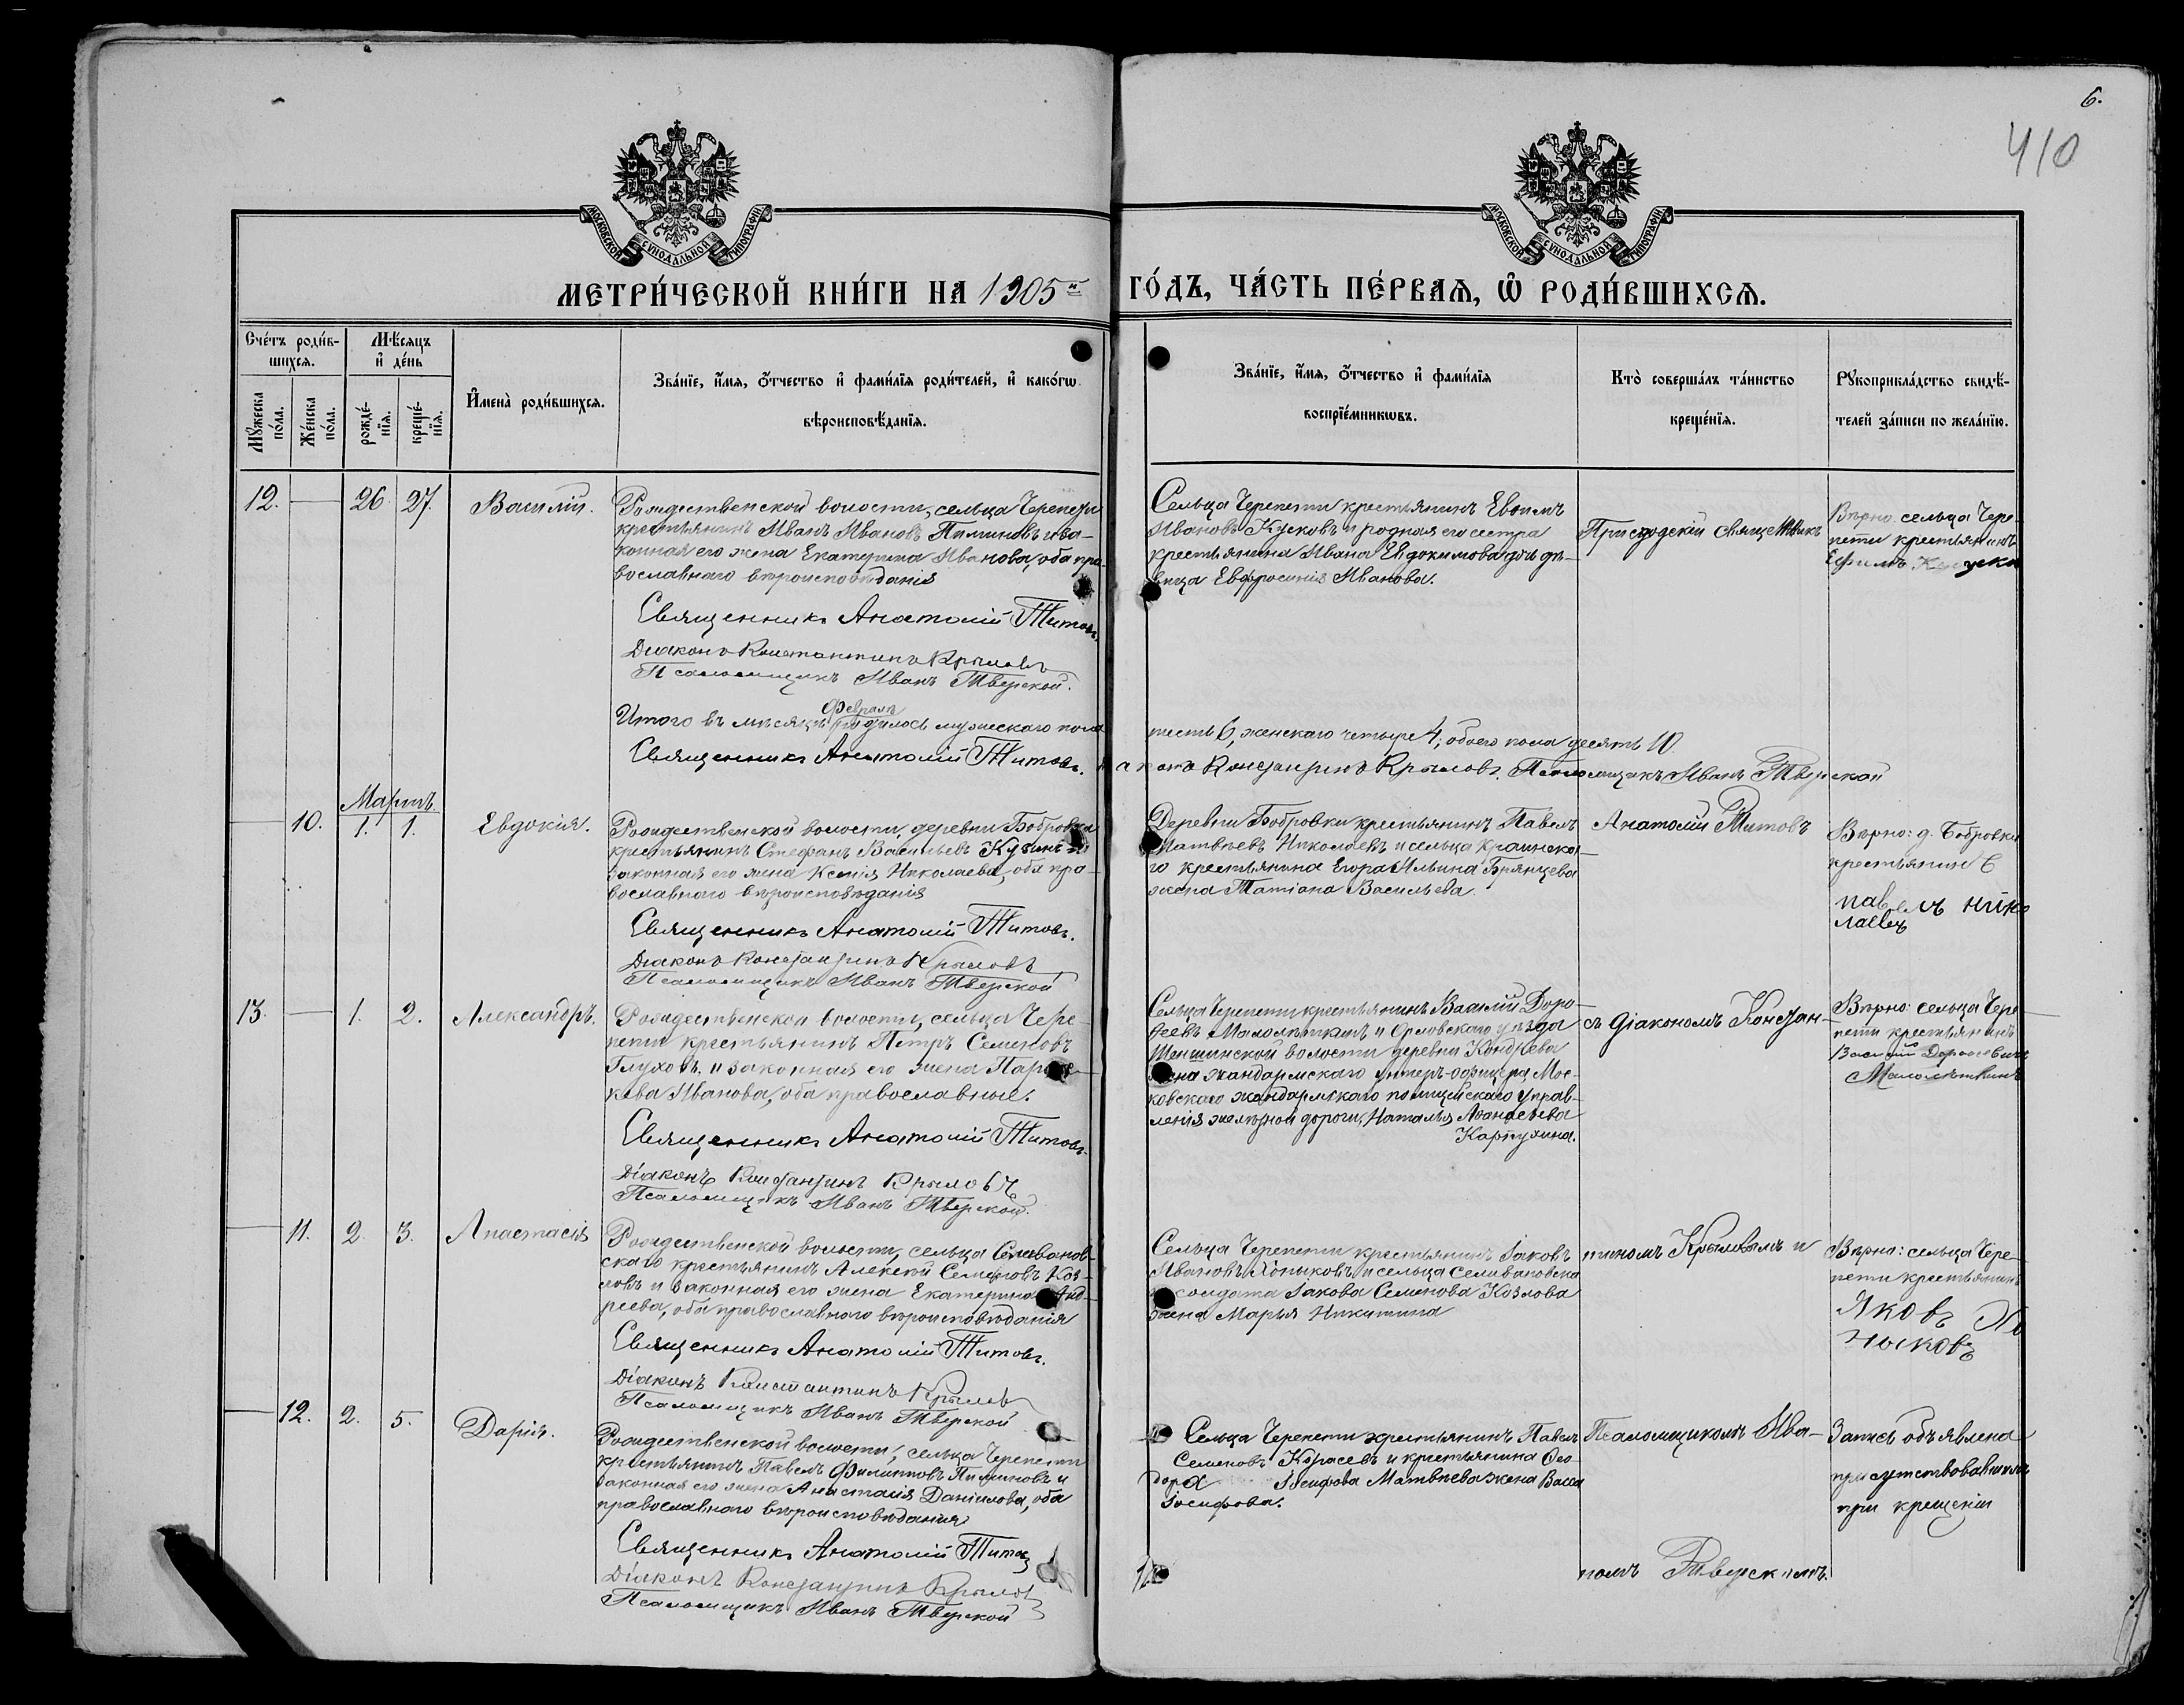 6.
410
МОСКОВСКОЙ СѴНОДАЛЬНОЙ ТИПОГРАФІИ
МОСКОВСКОЙ СѴНОДАЛЬНОЙ ТИПОГРАФІИ
МЕТРИ́ЧЕСКОЙ КНИ́ГИ НА 1905й ГО́ДЪ, ЧА́СТЬ ПЕ́РВАѦ, Ѡ РОДИ́ВШИХСѦ.
Сче́тъ роди́в-
шихсѧ.
Мꙋжеска по́ла.
Же́нска по́ла.
Мѣ́сѧцъ
и҆ де́нь
рожде́-
нїѧ.
креще́-
нїѧ.
И҆мена̀ роди́вшихсѧ.
Зва́нїе, и҆́мѧ, ѻ҆́тчество и҆ фами́лїѧ роди́телей, и҆ како́гѡ
вѣроисповѣ́данїѧ.
Зва́нїе, и҆́мѧ, ѻ҆́тчество и҆ фами́лїѧ
воспрїе́мникѡвъ.
Кто̀ соверша́лъ та́инство
креще́нїѧ.
Рꙋкоприкла́дство свидѣ́-
телей за́писи по жела́нїю.
12. — 26. 27. Василій.
Рождественской волости, сельца Черепети
крестьянинъ Иванъ Ивановъ Пиминовъ и за-
конная его жена Екатерина Иванова, оба пра-
вославнаго вѣроисповѣданія
Священникъ Анатолій Титовъ.
Діаконъ Константинъ Крыловъ
Псаломщикъ Иванъ Тверской.
Сельца Черепети крестьянинъ Евѳимъ
Ивановъ и родная его сестра
крестьянина Ивана Евдокимова дочь дѣ-
вица Евфросинія Иванова.
Приходскій священникъ
Вѣрно: сельца Чере-
пети крестьянинъ
Ефимъ
Итого въ мѣсяцѣ Февралѣ родилось мужескаго пола шесть 6, женскаго четыре 4, обоего пола десять 10.
Священникъ Анатолій Титовъ. Діаконъ Константинъ Крыловъ. Псаломщикъ Иванъ Тверской
Мартъ.
— 10. 1. 1. Евдокія.
Рождественской волости, деревни Бобровки
крестьянинъ Стефанъ Васильевъ и
законная его жена Ксенія Николаева, оба пра-
вославнаго вѣроисповѣданія
Священникъ Анатолій Титовъ.
Діаконъ Константинъ Крыловъ
Псаломщикъ Иванъ Тверской
Деревни Бобровки крестьянинъ Павелъ
Матвѣевъ Николаевъ и сельца Краинска-
го крестьянина Егора Ильина Брянцева
жена Татіана Васильева.
Анатолій Титовъ
Вѣрно: д. Бобровки
крестьянинъ
павелъ нико
лаевъ
13. — 1. 2. Александръ.
Рождественской волости, сельца Чере-
пети крестьянинъ Петръ Семеновъ
Глуховъ и законная его жена Парас-
кева Иванова, оба православные.
Священникъ Анатолій Титовъ.
Діаконъ Константинъ Крыловъ
Псаломщикъ Иванъ Тверской.
Сельца Черепети крестьянинъ Василій Доро-
ѳеевъ Малолѣткинъ и Орловскаго уѣзда
волости деревни
жена жандармскаго унтеръ-офицера Мос-
ковскаго жандармскаго полицейскаго управ-
ленія желѣзной дороги, Наталья Аѳанасьева
Карпухина.
съ діакономъ Констан-
Вѣрно: сельца Чере-
пети крестьянинъ
Василій Дороѳеевичъ
Малолѣткинъ
— 11. 2. 3. Анастасія
Рождественской волости, сельца Селиванов-
скаго крестьянинъ Алексѣй Семеновъ Коз-
ловъ и законная его жена Екатерина Анд-
реева, оба православнаго вѣроисповѣданія
Священникъ Анатолій Титовъ.
Діаконъ Константинъ Крыловъ
Псаломщикъ Иванъ Тверской
Сельца Черепети крестьянинъ Іаковъ
Ивановъ и сельца Селивановска
солдата Іакова Семенова Козлова
жена Марья Никитина
тиномъ Крыловымъ и
Вѣрно: сельца Чере-
пети крестьянинъ
Яковъ
— 12. 2. 5. Дарія.
Рождественской волости, сельца Черепети
крестьянинъ Павелъ Филипповъ Пиминовъ и
законная его жена Анастасія Даніилова, оба
православнаго вѣроисповѣданія
Священникъ Анатолій Титовъ
Діаконъ Константинъ Крыловъ
Псаломщикъ Иванъ Тверской
Сельца Черепети крестьянинъ Павелъ
Семеновъ Карасевъ и крестьянина Ѳео-
дора Іосифова Матвѣева жена Васса
Іосифова.
Псаломщикомъ Ива-
номъ Тверскимъ.
Запись объявлена
присутствовавшимъ
при крещеніи